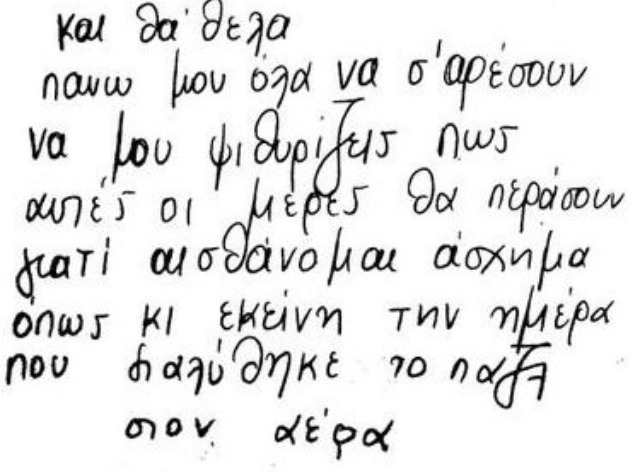 και θα'θελα
πανω μου όλα να σ'αρέσουν
να μου ψιθυρίζεις πως
αυτές οι μέρες θα περάσουν
γιατί αισθάνομαι άσχημα
όπως κι εκείνη την ημέρα
που διαλύθηκε το παζλ
στον αέρα